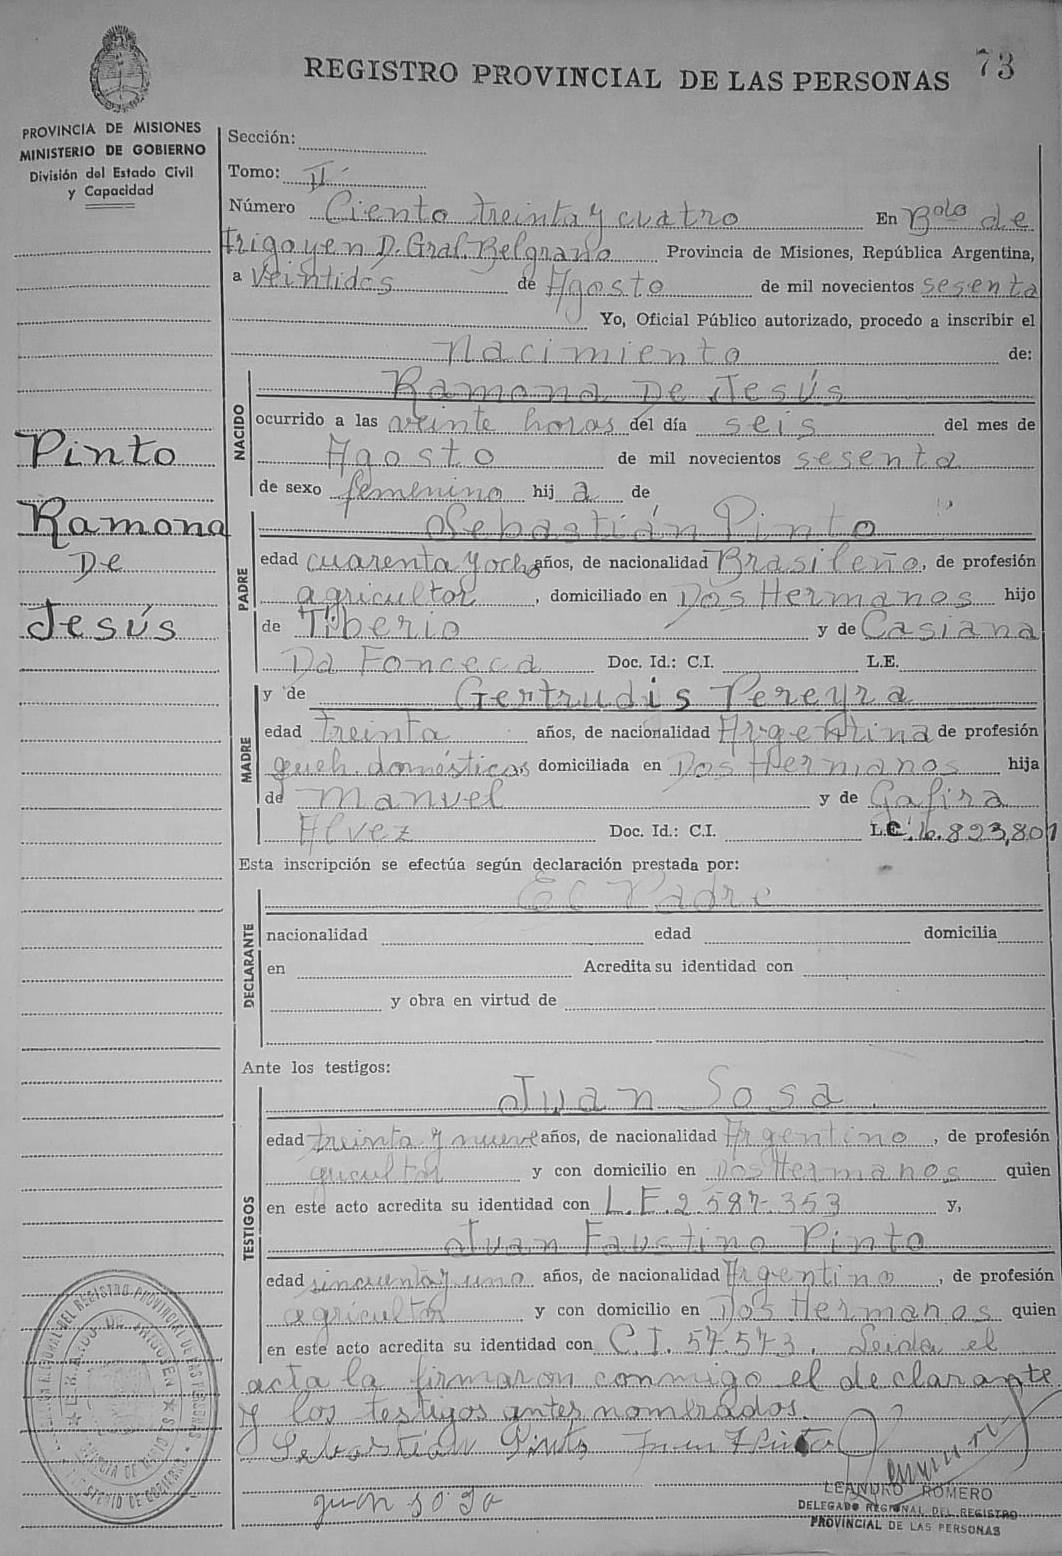 73
REGISTRO PROVINCIAL DE LAS PERSONAS
PROVINCIA DE MISIONES
MINISTERIO DE GOBIERNO
División del Estado Civil
y Capacidad
Pinto
Ramona
De
Jesús
Sección:
Tomo: II
Número Ciento treinta y cuatro En Bdo de
Irigoyen D. Gral. Belgrano Provincia de Misiones, República Argentina,
a Veintidos de Agosto de mil novecientos sesenta
Yo, Oficial Público autorizado, procedo a inscribir el
Nacimiento de:
NACIDO
Ramona De Jesús
ocurrido a las veinte horas del día seis del mes de
Agosto de mil novecientos sesenta
de sexo femenino hij a de
PADRE
Sebastián Pinto
edad cuarenta y ocho años, de nacionalidad Brasileño, de profesión
agricultor, domiciliado en Dos Hermanos hijo
de Tiberio y de Casiana
Da Fonceca Doc. Id.: C.I. L.E.
MADRE
y de Gertrudis Pereyra
edad treinta años, de nacionalidad Argentina de profesión
queh. domésticos domiciliada en Dos Hermanos hija
de Manuel y de Gafira
Alvez Doc. Id.: C.I. L.C. 6.823,801
Esta inscripción se efectúa según declaración prestada por:
DECLARANTE
El Padre
nacionalidad edad domicilia
en Acredita su identidad con
y obra en virtud de
Ante los testigos:
TESTIGOS
Juan Sosa
edad treinta y nueve años, de nacionalidad Argentino, de profesión
gricultor y con domicilio en Dos Hermanos quien
en este acto acredita su identidad con L.E. 2.587-353 y,
Juan Faustino Pinto
edad sincuenta y uno años, de nacionalidad Argentino, de profesión
agricultor y con domicilio en Dos Hermanos quien
en este acto acredita su identidad con C.I. 57.573. Leida el
acta la firmaron conmigo el declarante
y los testigos antes nombrados.
Sebastián Pinto Juan F Pinto
juan sosa
LEANDRO ROMERO
DELEGADO REGIONAL DEL REGISTRO
PROVINCIAL DE LAS PERSONAS